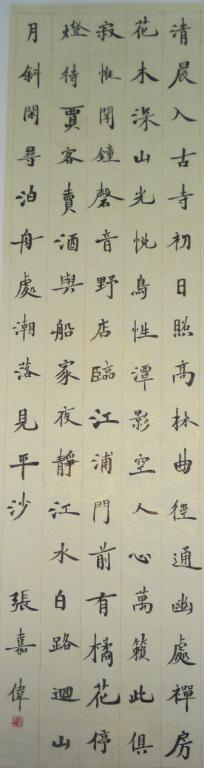 清晨入古寺初日照高林曲徑通幽處禪房
花木深山光悅鳥性潭影空人心萬籟此俱
寂惟聞鐘磬音野店臨江浦門前有橘花停
燈待賈客賣酒與船家夜靜江水白路迴山
月斜閑尋泊舟處潮落見平沙 張嘉偉